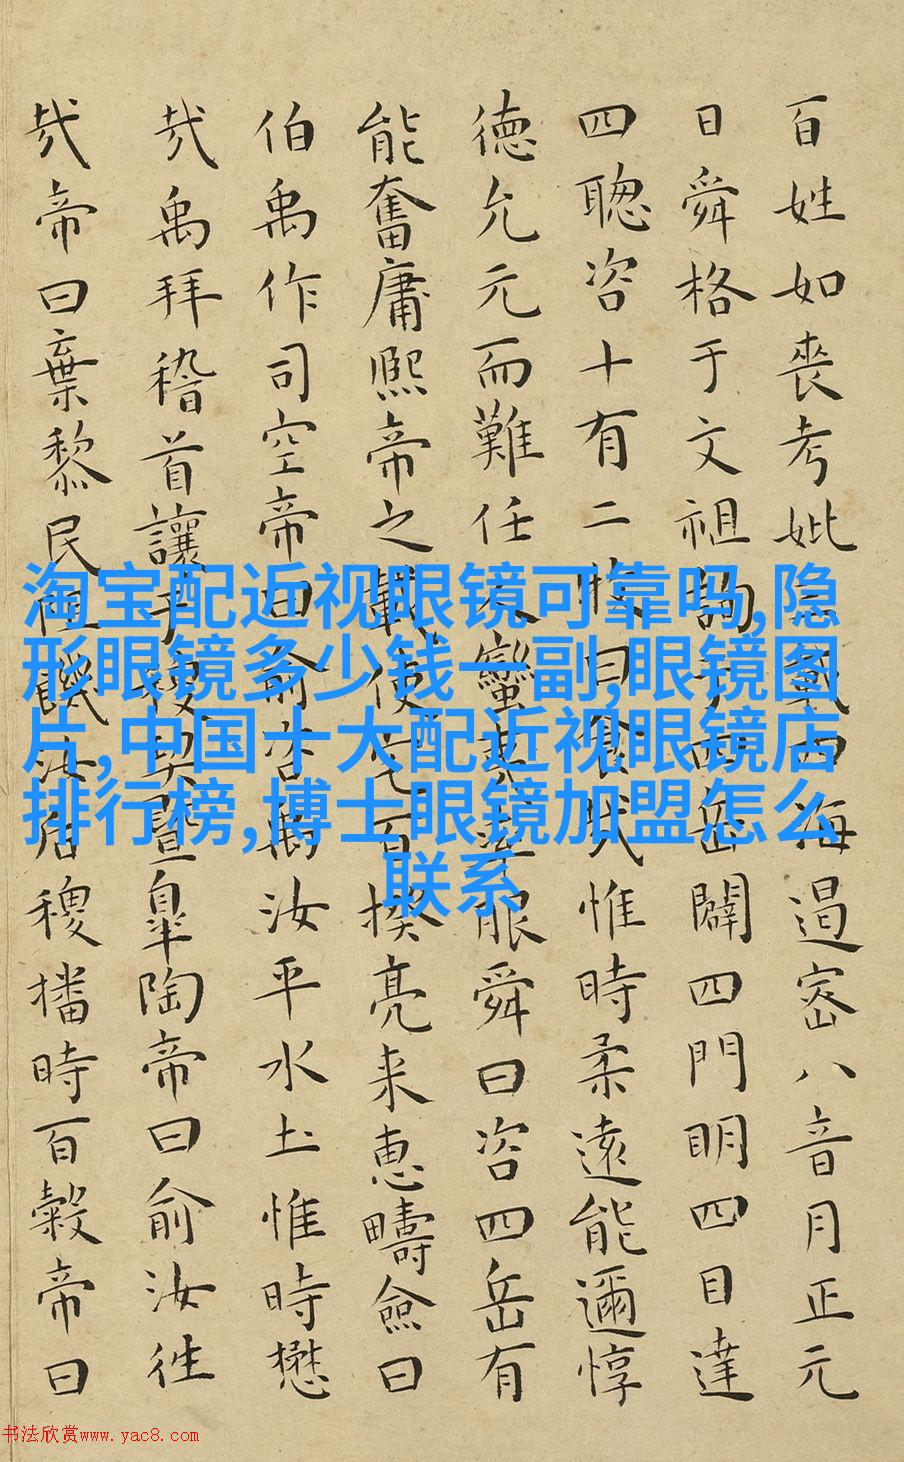 百姓如喪考妣三載四海遏密八音月正元
日舜格于文祖詢于四岳闢四門明四目達
四聰咨十有二牧曰食哉惟時柔遠能邇惇
德允元而難任人蠻夷率服舜曰咨四岳有
能奮庸熙帝之載使宅百揆亮采惠疇僉曰
伯禹作司空帝曰俞咨禹汝平水土惟時懋
哉禹拜稽首讓于稷契暨皐陶帝曰俞汝往
哉帝曰棄黎民阻饑汝后稷播時百穀帝曰
淘宝配近视眼镜可靠吗,隐
形眼镜多少钱一副,眼镜图
片,中国十大配近视眼镜店
排行榜,博士眼镜加盟怎么
联系
书法欣赏www.yac8.com